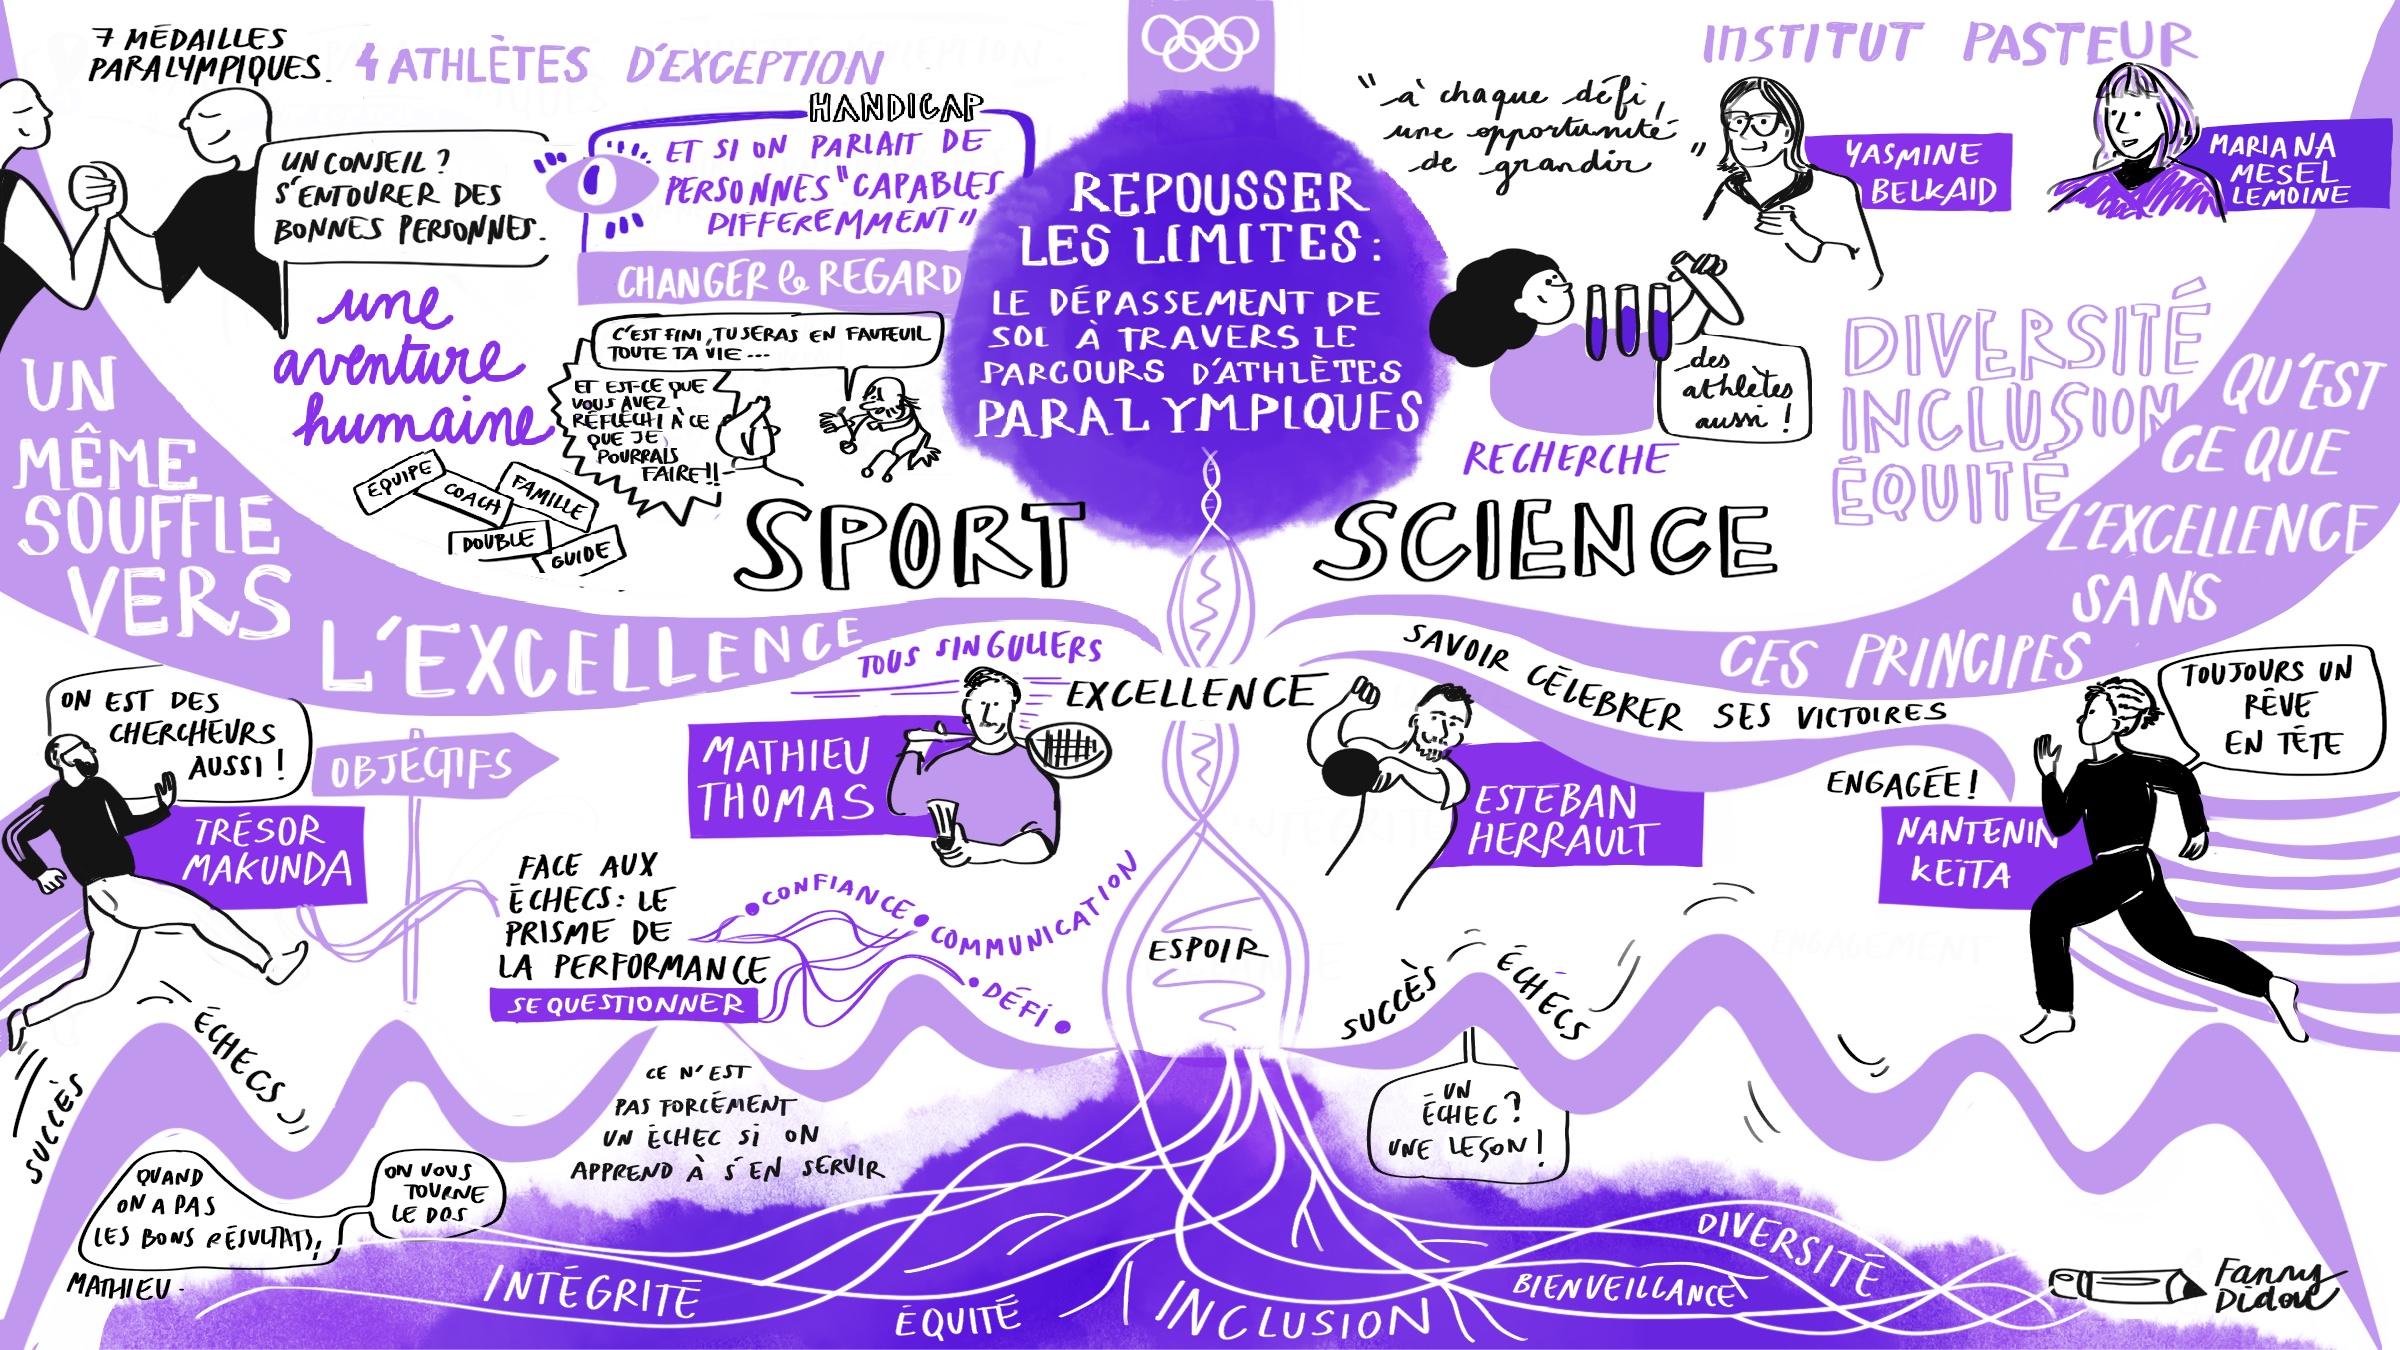 7 MÉDAILLES
PARALYMPIQUES.
4 ATHLÈTES D'EXCEPTION
UN CONSEIL ?
S'ENTOURER DES
BONNES PERSONNES.
HANDICAP
ET SI ON PARLAIT DE
PERSONNES "CAPABLES
DIFFEREMMENT"
CHANGER le REGARD
une
aventure
humaine
C'EST FINI, TU SERAS EN FAUTEUIL
TOUTE TA VIE...
ET EST-CE QUE
VOUS AVEZ
RÉFLÉCHI À CE
QUE JE
POURRAIS
FAIRE !!
EQUIPE
COACH
FAMILLE
DOUBLE
GUIDE
SPORT
REPOUSSER
LES LIMITES :
LE DÉPASSEMENT DE
SOI À TRAVERS LE
PARCOURS D'ATHLÈTES
PARALYMPIQUES
INSTITUT PASTEUR
"à chaque défi,
une opportunité
de grandir"
YASMINE
BELKAID
MARIANA
MESEL
LEMOINE
des
athlètes
aussi !
RECHERCHE
SCIENCE
DIVERSITÉ
INCLUSION
ÉQUITÉ
QU'EST
CE QUE
L'EXCELLENCE
SANS
CES PRINCIPES
UN
MÊME
SOUFFLE
VERS
L'EXCELLENCE
TOUS SINGULIERS
EXCELLENCE
SAVOIR CÉLEBRER SES VICTOIRES
ON EST DES
CHERCHEURS
AUSSI !
TRÉSOR
MAKUNDA
OBJECTIFS
MATHIEU
THOMAS
ESTEBAN
HERRAULT
ENGAGÉE !
NANTENIN
KEÏTA
TOUJOURS UN
RÊVE
EN TÊTE
FACE AUX
ÉCHECS : LE
PRISME DE
LA PERFORMANCE
SE QUESTIONNER
CONFIANCE
COMMUNICATION
DÉFI
ESPOIR
SUCCÈS
ÉCHECS
SUCCÈS
ÉCHECS
CE N'EST
PAS FORCÉMENT
UN ÉCHEC SI ON
APPREND À S'EN SERVIR
UN
ÉCHEC ?
UNE LEÇON !
QUAND
ON A PAS
LES BONS RÉSULTATS,
ON VOUS
TOURNE
LE DOS
MATHIEU.
INTÉGRITÉ
ÉQUITÉ
INCLUSION
BIENVEILLANCE
DIVERSITÉ
Fanny
Didou